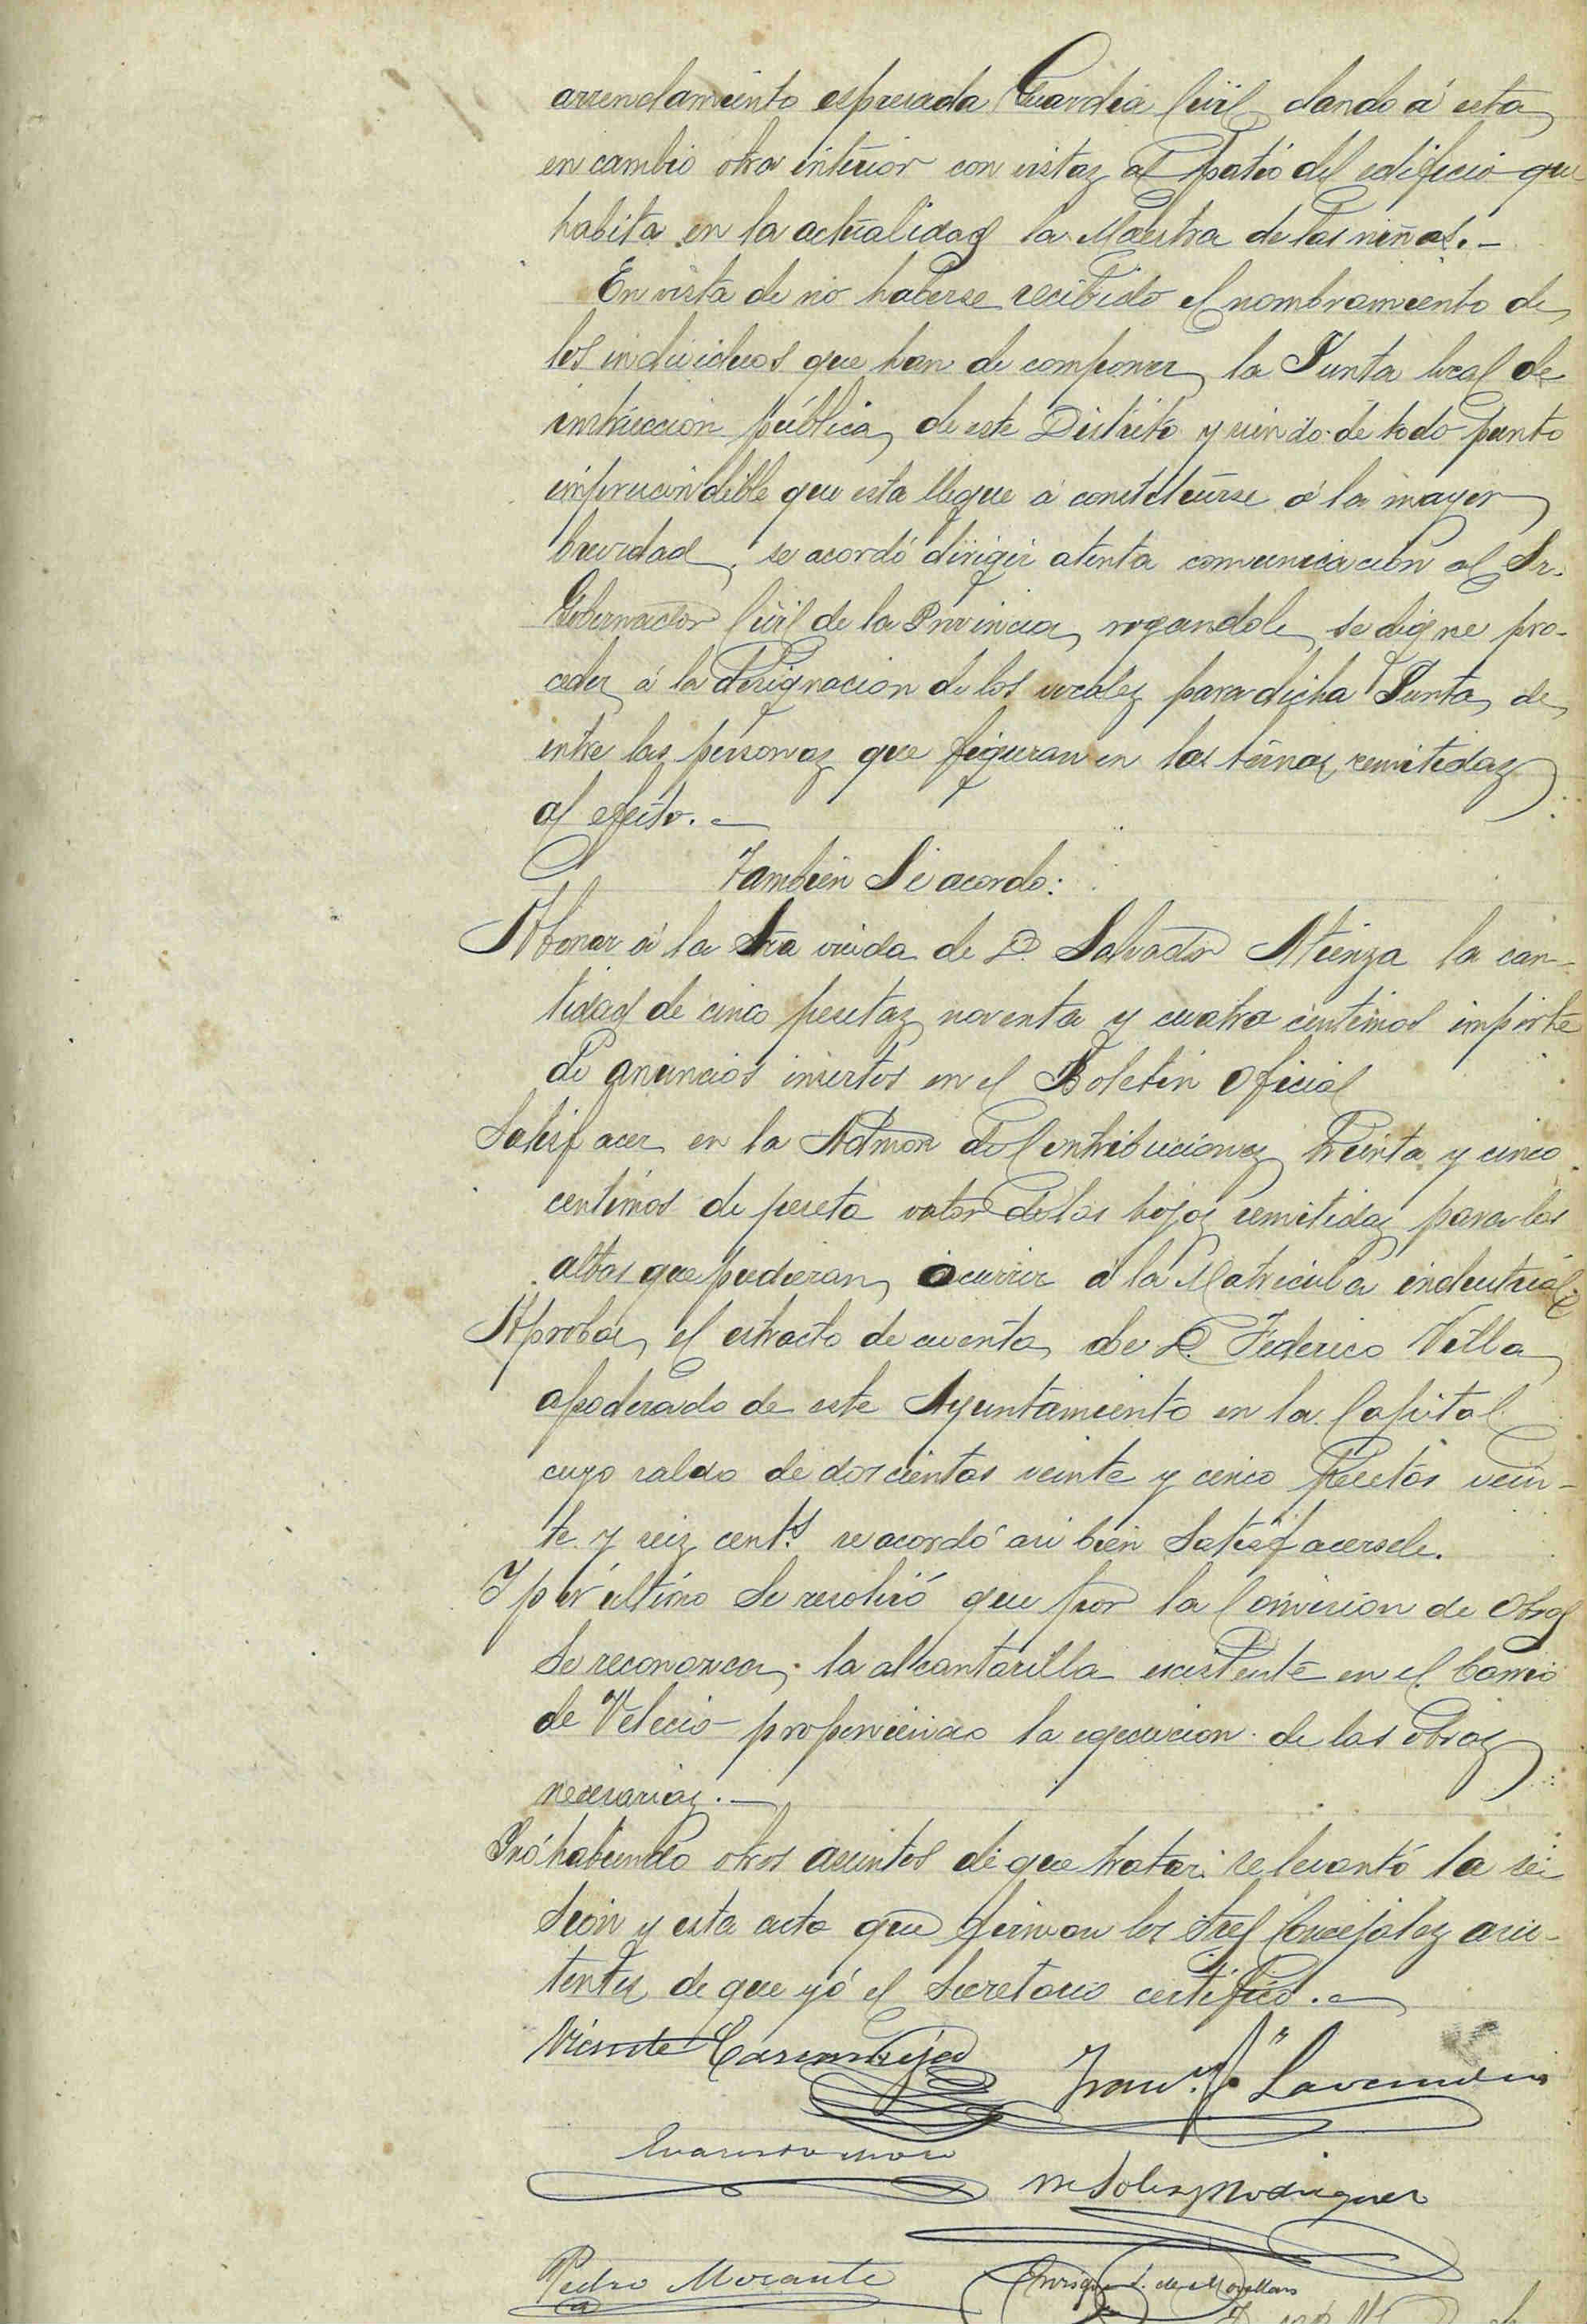 arrendamiento espresada Guardia Civil dando á esta
en cambio otra interior con vistas al patio del edificio que
habita en la actualidad la Maestra de las niñas.-
En vista de no haberse recibido el nombramiento de
los individuos que han de componer la Junta local de
instrucción pública, de este Distrito y siendo de todo punto
imprescindible que esta llegue á constituirse á la mayor
brevedad, se acordó dirigir atenta comunicación al Sr.
Gobernador Civil de la Provincia, rogandole se digne pro-
ceder á la designacion de los vocales para dicha Junta, de
entre las personas que figuran en las ternas remitidas
al efecto.-
Tambien Se acordo:
Abonar á la Sra viuda de D. Salvador Atienza la can-
tidad de cinco pesetas noventa y cuatro centimos importe
de anuncios insertos en el Boletin Oficial
Satisfacer en la Admon de Contribuciones treinta y cinco
centimos de peseta valor de las hojas remitidas para las
altas que pudieran ocurrir á la Matricula industrial.
Aprobar el estracto de cuenta de D. Federico Villa
apoderado de este Ayuntamiento en la Capital
cuyo saldo de doscientas veinte y cinco Pesetas vein-
te y seis cents. se acordó asi bien Satisfacersele.
Y por último Se resolvió que por la Comision de Obras
Se reconozca la alcantarilla existente en el barrio
de Velecio proponiendo la egecucion de las obras
necesarias.-
Y no habiendo otros asuntos de que tratar se levantó la se-
sion y esta acta que firman los Sres Concejales asis-
tentes de que yó el Secretario certifico.-
Vicente
Franco. J.
Evaristo
M Solis y Rodriguez
Pedro Morante
Enrique